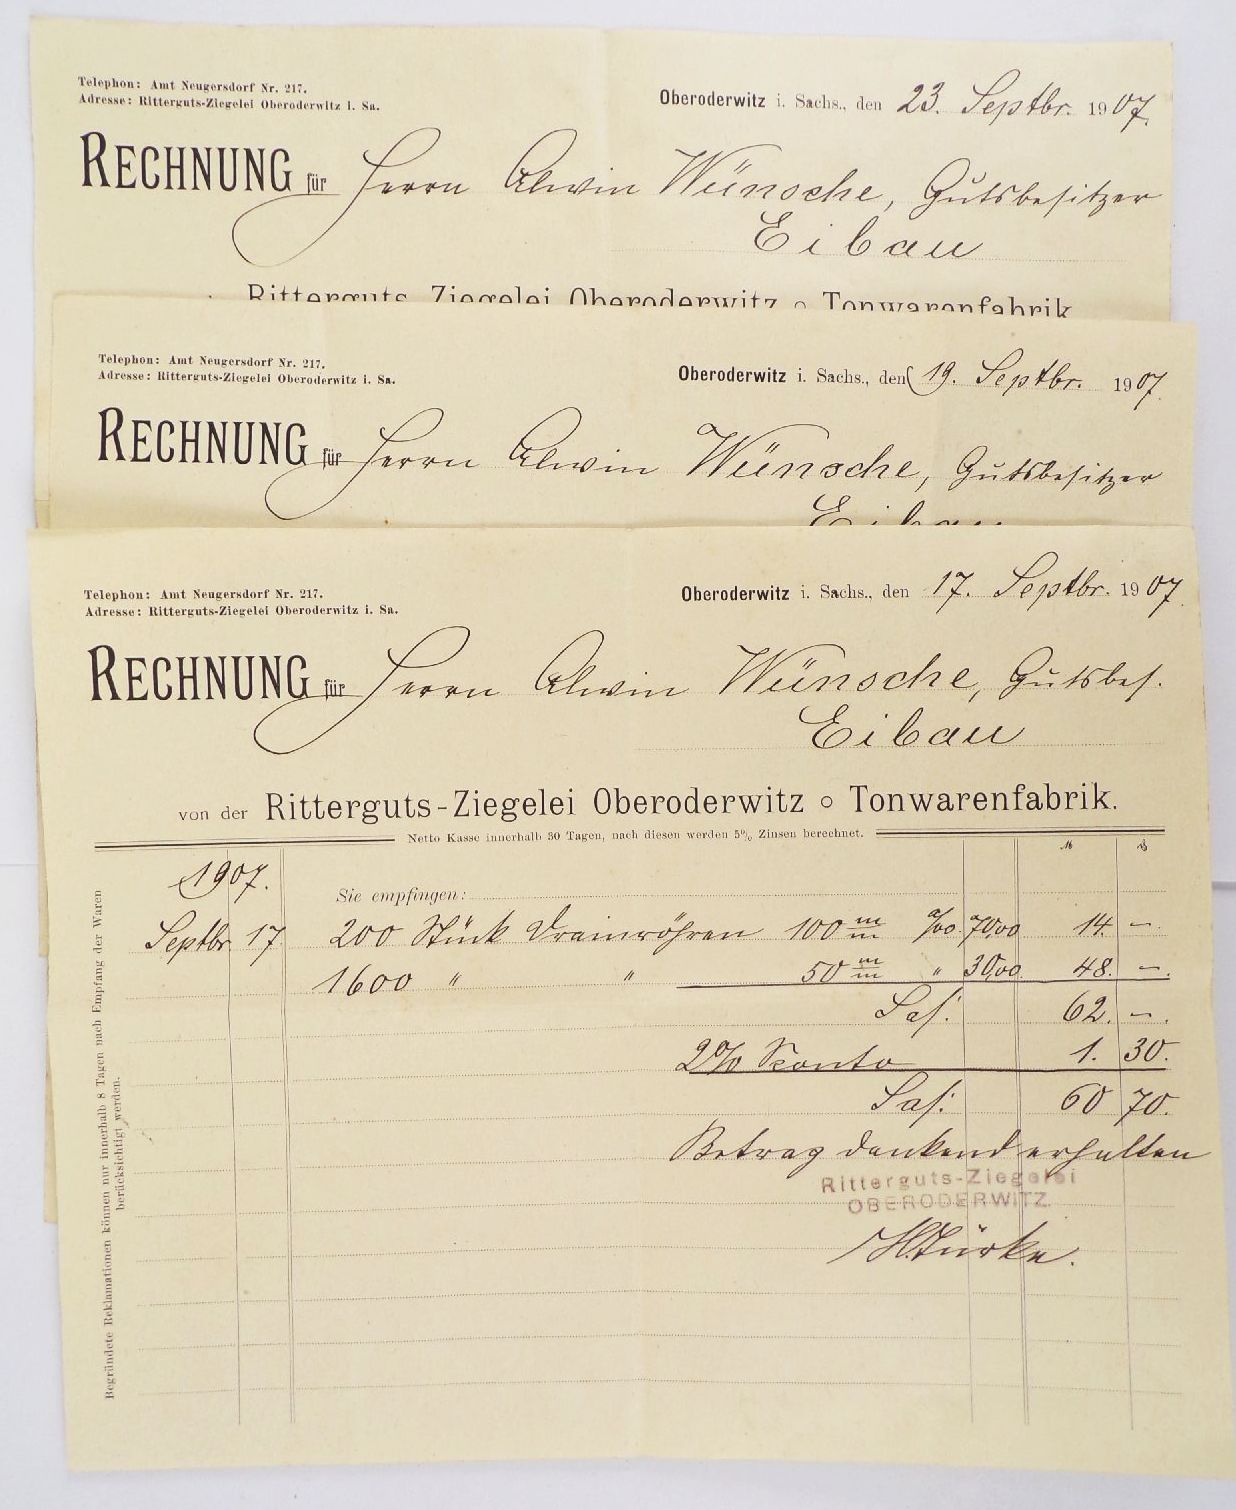 Telephon: Amt Neugersdorf Nr. 217.
Adresse: Ritterguts-Ziegelei Oberoderwitz i. Sa.
Oberoderwitz i. Sachs., den 23. Septbr. 1907.
RECHNUNG für Herrn Alwin Wünsche, Gutsbesitzer
Eibau
Ritterguts-Ziegelei Oberoderwitz o Tonwarenfabrik
Telephon: Amt Neugersdorf Nr. 217.
Adresse: Ritterguts-Ziegelei Oberoderwitz i. Sa.
Oberoderwitz i. Sachs., den 19. Septbr. 1907.
RECHNUNG für Herrn Alwin Wünsche, Gutsbesitzer
Eibau
Telephon: Amt Neugersdorf Nr. 217.
Adresse: Ritterguts-Ziegelei Oberoderwitz i. Sa.
Oberoderwitz i. Sachs., den 17. Septbr. 1907.
RECHNUNG für Herrn Alwin Wünsche, Gutsbes.
Eibau
von der Ritterguts-Ziegelei Oberoderwitz o Tonwarenfabrik.
Netto Kasse innerhalb 30 Tagen, nach diesen werden 5% Zinsen berechnet.
1907.
Sie empfingen:
Septbr. 17. 200 Stück Drainröhren 100 m/m 70,00 14. –.
1600 " " 50 m/m " 30,00. 48. –.
Sa: 62. –.
2% Skonto 1. 30.
Sa: 60 70.
Betrag dankend erhalten
Ritterguts-Ziegelei
OBERODERWITZ
Begründete Reklamationen können nur innerhalb 8 Tagen nach Empfang der Waren
berücksichtigt werden.